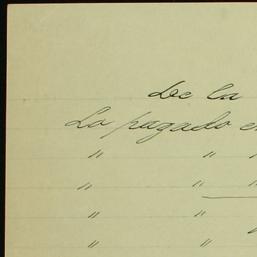 De la
Lo pagado e
" " "
" " "
" "
" "